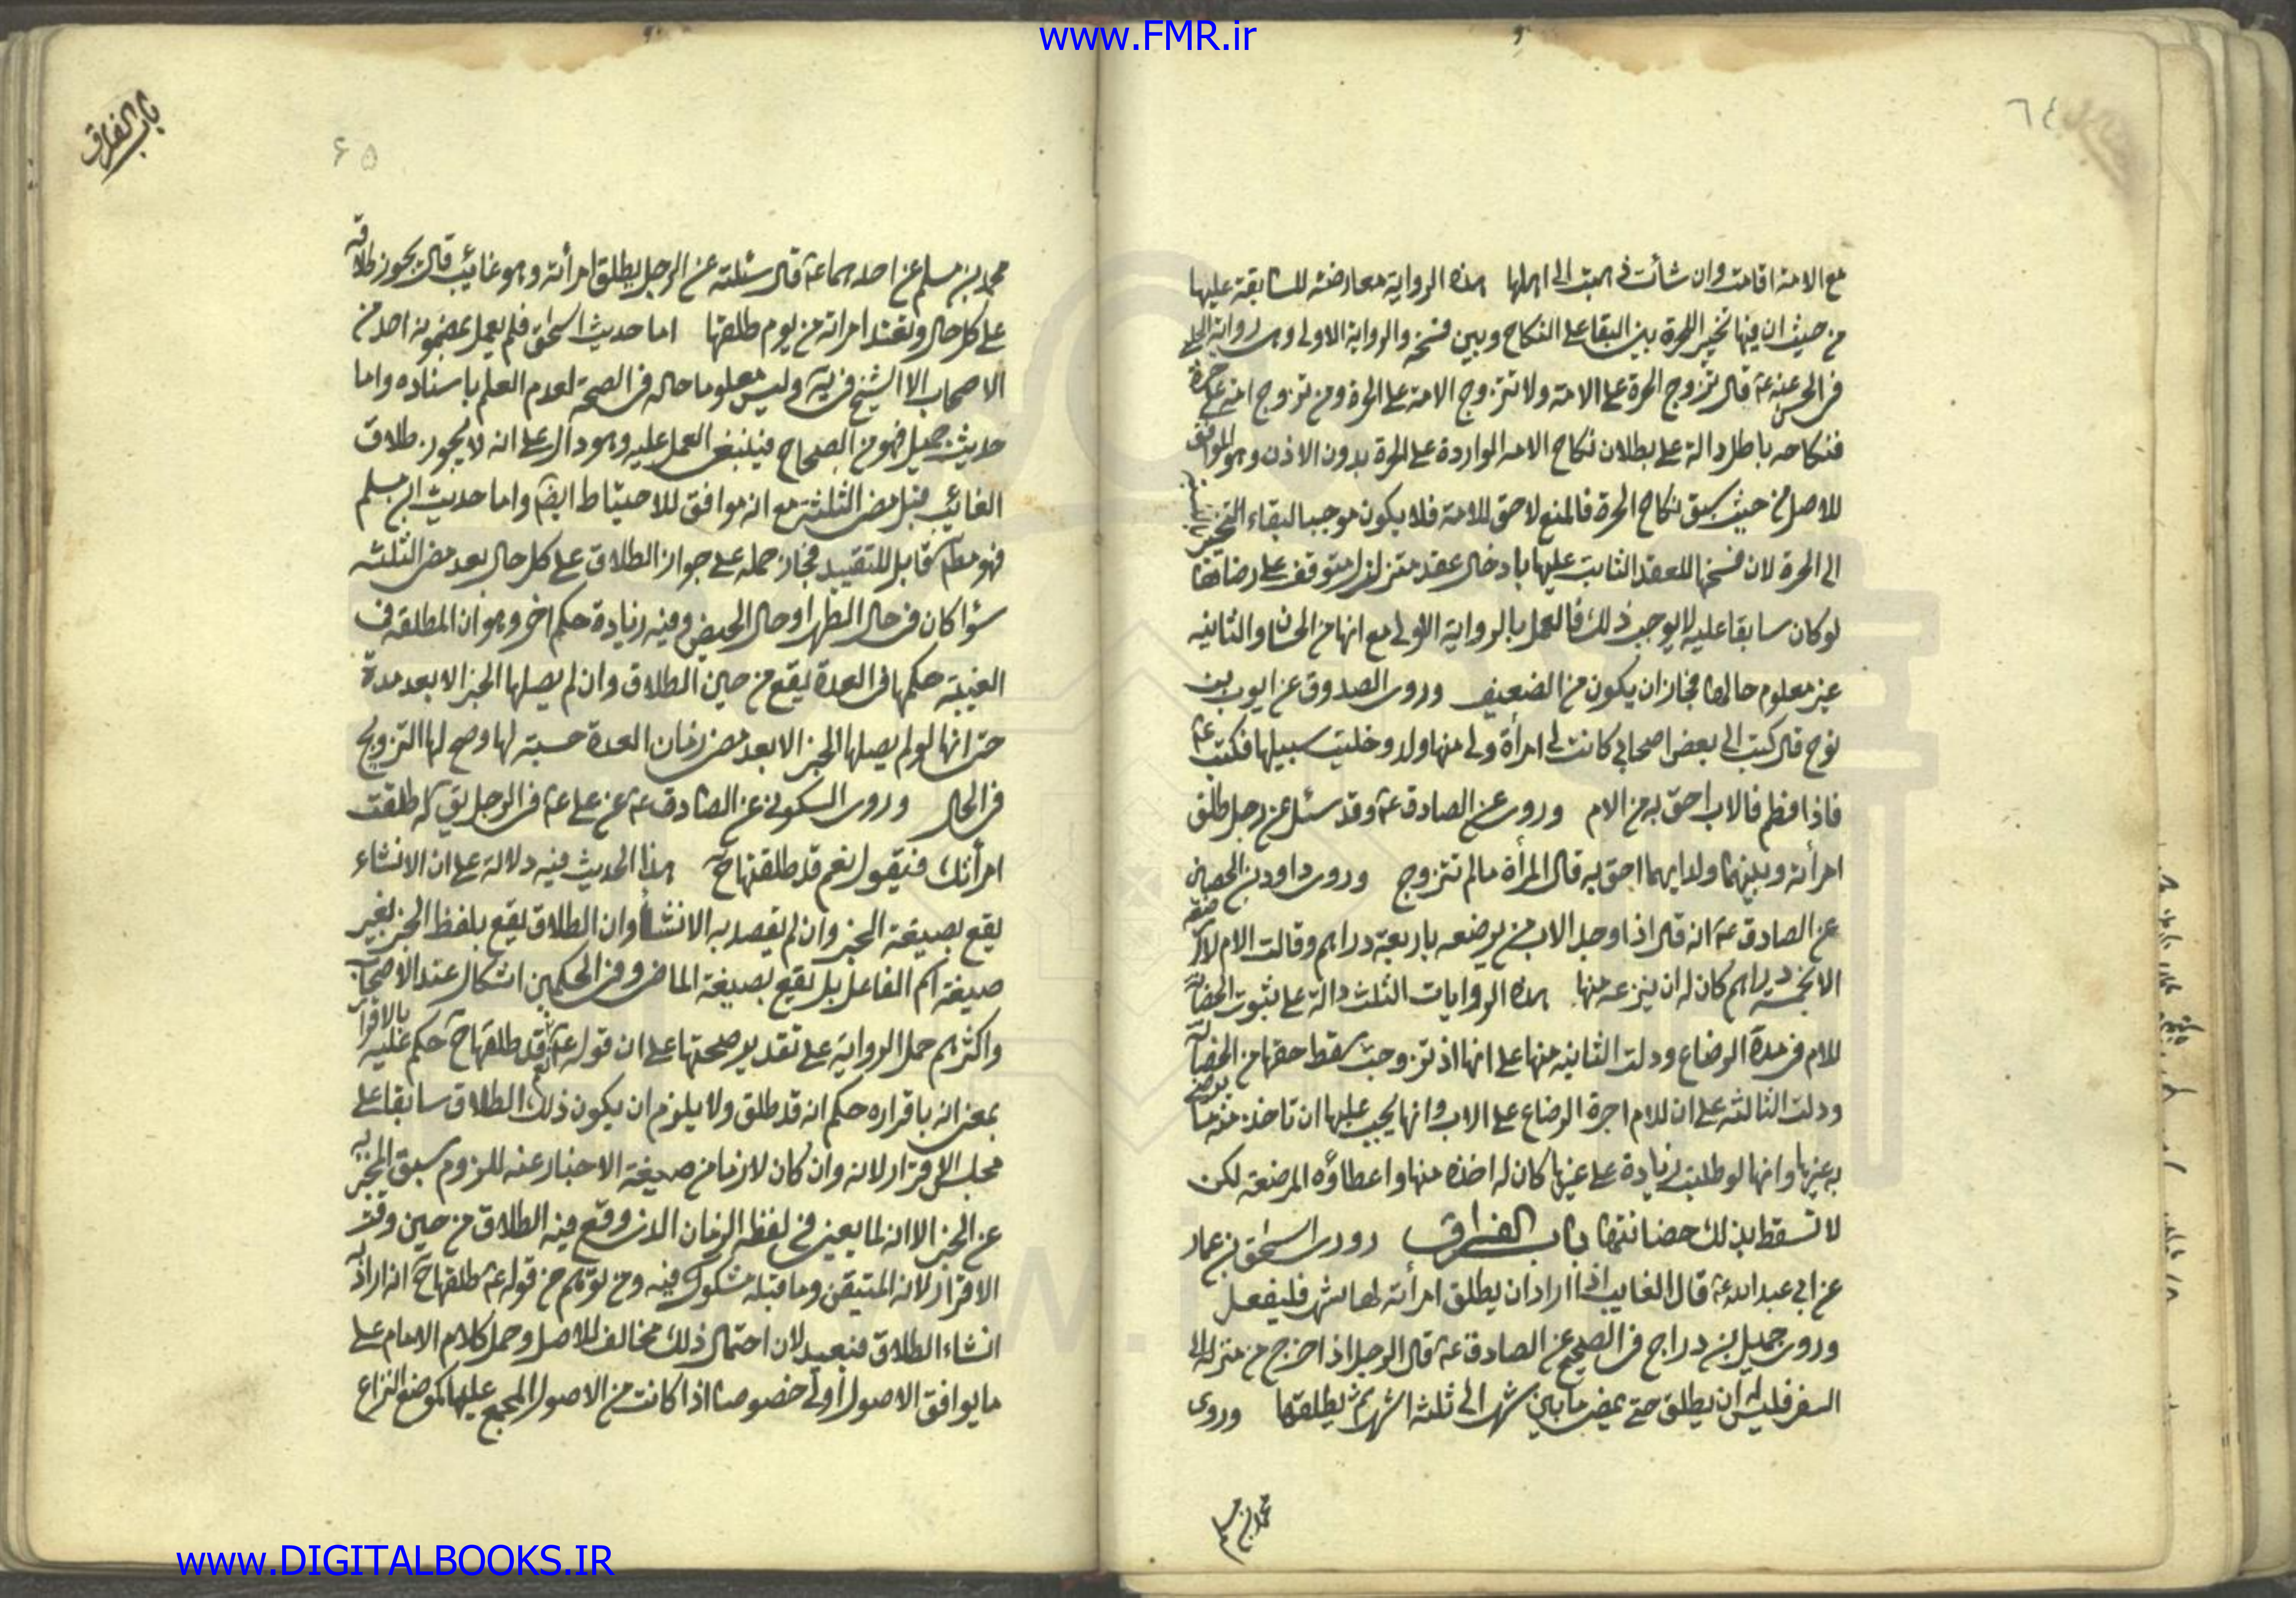 www.FMR.ir
٦٤
مع الامة اقامت وان شأت ذهبت الى اهلها هذه الرواية معارضة للسابقة عليها
من حيث ان فيها تخيير الحرة بين البقا على النكاح وبين فسخه والرواية الاولى وهى رواية الحلبى
فى الحسن عنه ع قال تزوج الحرة على الامة ولا تتزوج الامة على الحرة ومن تزوج امة على حرة
فنكاحه باطل دالة على بطلان نكاح الامه الواردة على الحرة بدون الاذن وهو الموافق
للاصل من حيث سبق نكاح الحرة فالمنع لاحق للامة فلا يكون موجبا لبقاء التخيير
الى الحرة لان فسخها للعقد الثابت عليها بادخال عقد متزلزل متوقف على رضاها
لو كان سابقا عليه لا يوجب ذلك فالعمل بالرواية الاولى مع انها من الحسان والثانيه
غير معلوم حالها فجاز ان يكون من الضعيف وروى الصدوق عن ايوب بن
نوح قال كتب الى بعض اصحابى كانت لى امرأة ولى منها ولد وخليت سبيلها فكتب ع
فاذا فطم فالاب احق به من الام وروى عن الصادق ع وقد سئل عن رجل طلق
امرأته وبينهما ولد ايهما احق به قال المرأة مالم تتزوج وروى داود بن الحصين
عن الصادق ع انه قال اذا وجد الاب من يرضعه باربعة دراهم وقالت الام لا ارضعه
الا بخمسة دراهم كان له ان ينزعه منها هذه الروايات الثلث دالة على ثبوت الحضانة
للام فى مدة الرضاع ودلت الثانيه منها على انها اذ تزوجت سقط حقها من الحضانة
ودلت الثالثه على ان للام اجرة الرضاع على الاب وانها يجب عليها ان تاخذ منه ما يرضى
به غيرها وانها لو طلبت زيادة على غيرها كان له اخذه منها واعطاؤه المرضعة لكن
لا تسقط بذلك حضانتها باب الفراق روى اسحق بن عمار
عن ابى عبد الله ع قال الغايب اذا اراد ان يطلق امرأته لها شهر فليفعل
وروى جميل بن دراج فى الصحيح عن الصادق ع قال الرجل اذا خرج من منزله الى
السفر فليس له ان يطلق حتى يمضى ما بين شهر الى ثلثه اشهر ثم يطلقها وروى
محمد بن مسلم
باب الفراق
۶۵
محمد بن مسلم عن احدهما ع قال سئلته عن الرجل يطلق امرأته وهو غايب قال يجوز طلاقه
على كل حال وتعتد امراته من يوم طلقها اما حديث اسحق فلم يعمل بمضمونه احد من
الاصحاب الا الشيخ فى يه وليس معلوما حاله فى الصحة لعدم العلم باسناده واما
حديث جميل فهو من الصحاح فينبغى العمل عليه وهو دال على انه لا يجوز طلاق
الغائب قبل مضى الثلثة مع انه موافق للاحتياط ايضا واما حديث ابن مسلم
فهو مطلق قابل للتقييد فجاز حمله على جواز الطلاق على كل حال بعد مضى الثلثه
سؤا كان فى حال الطهر او حال الحيض وفيه زيادة حكم اخر وهو ان المطلقه فى
الغيبة حكمها فى العدة يقع من حين الطلاق وان لم يصلها الخبر الا بعد مدة
حتى انها لو لم يصلها الخبر الا بعد مضى زمان العدة حسبة لها وصح لها التزويج
فى الحال وروى السكونى عن الصادق ع عن على ع فى الرجل يق له طلقت
امرأتك فيقول نعم قد طلقتها ح هذا الحديث فيه دلالة على ان الانشاء
يقع بصيغة الخبر وان لم يقصد به الانشأ وان الطلاق يقع بلفظ الخبر بغير
صيغة اسم الفاعل بل يقع بصيغة الماضى وفى الحكمين اشكال عند الاصحاب
واكثرهم حمل الرواية على تقدير صحتها على ان قوله ع قد طلقها ح حكم عليه بالاقرار
بمعنى انه باقراره حكم انه قد طلق ولا يلزم ان يكون ذلك الطلاق سابقا على
مجلس الاقرار لانه وان كان لازما من صيغة الاخبار عنه للزوم سبق المخبر به
عن الخبر الا انه لما يعين فى لفظه الزمان الذى وقع فيه الطلاق من حين وقت
الاقرار لانه المتيقن وما قبله مشكوك فيه ومن توهم من قوله ع طلقها ح انه اراد به
انشاء الطلاق فبعيد لان احتمال ذلك مخالف للاصل وحمل كلام الامام على
ما يوافق الاصول اولى خصوصا اذا كانت من الاصول المجمع عليها كموضع النزاع
www.DIGITALBOOKS.IR